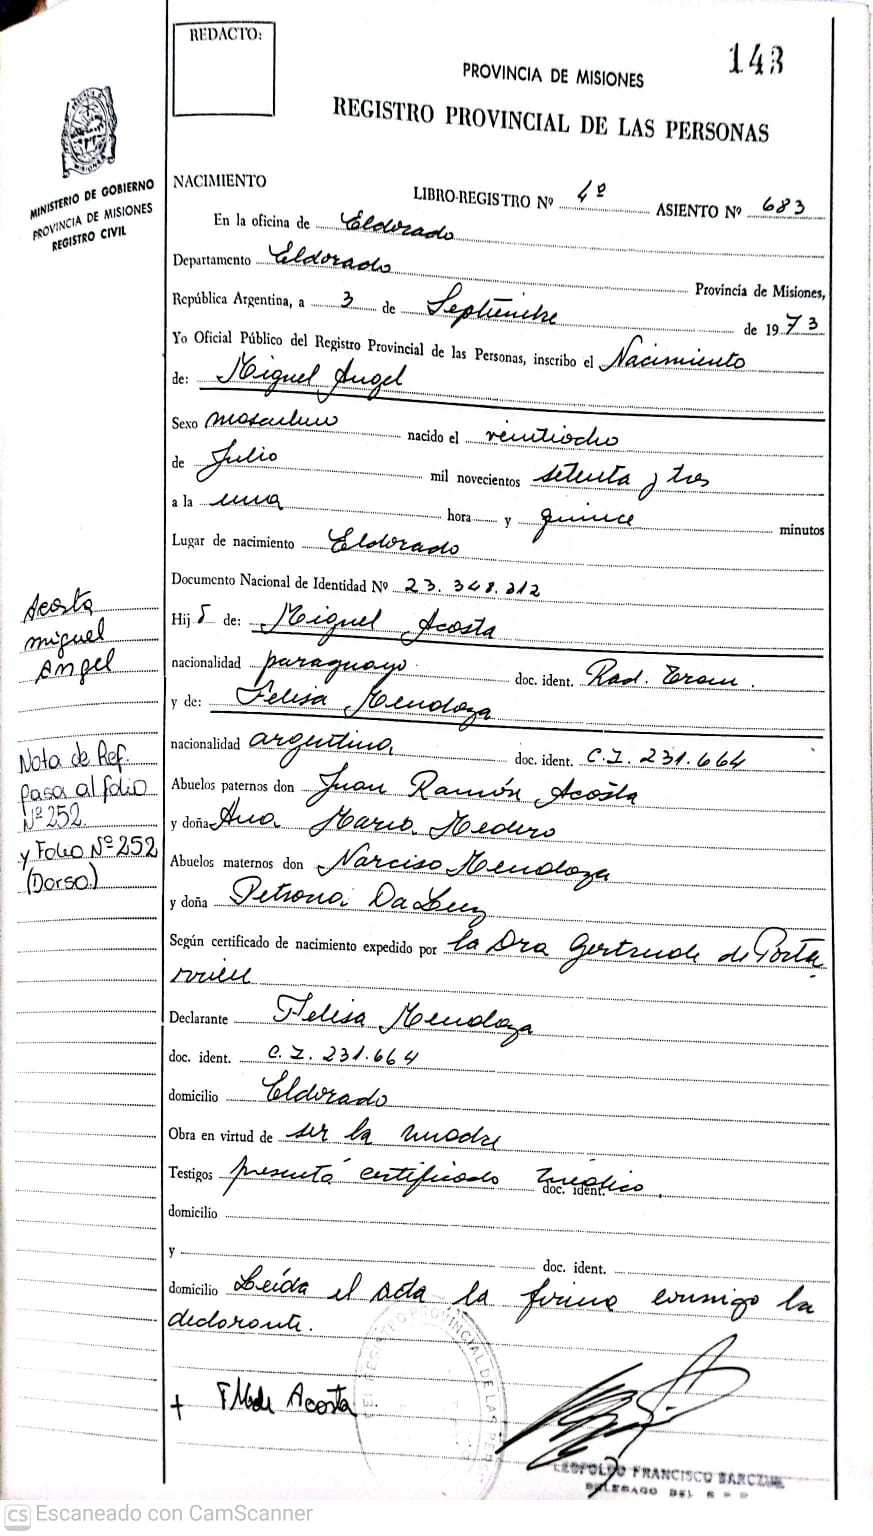 REDACTO:
143
PROVINCIA DE MISIONES
REGISTRO PROVINCIAL DE LAS PERSONAS
MINISTERIO DE GOBIERNO
PROVINCIA DE MISIONES
REGISTRO CIVIL
NACIMIENTO
LIBRO-REGISTRO Nº 4º ASIENTO Nº 683
En la oficina de Eldorado
Departamento Eldorado Provincia de Misiones,
República Argentina, a 3 de Septiembre de 1973
Yo Oficial Público del Registro Provincial de las Personas, inscribo el Nacimiento
de: Miguel Angel
Sexo masculino nacido el veintiocho
de Julio mil novecientos setenta y tres
a la una hora y quince minutos
Lugar de nacimiento Eldorado
Documento Nacional de Identidad Nº 23.348.212
Hijo de: Miguel Acosta
nacionalidad paraguayo doc. ident. Rad.
y de: Felisa Mendoza
nacionalidad argentina doc. ident. C.I. 231.664
Abuelos paternos don Juan Ramón Acosta
y doña Ana María Medero
Abuelos maternos don Narciso Mendoza
y doña Petrona Da Luz
Según certificado de nacimiento expedido por la Dra Gertrude de
Declarante Felisa Mendoza
doc. ident. C.I. 231.664
domicilio Eldorado
Obra en virtud de ser la madre
Testigos presentó certificado médico. doc. ident.
domicilio
y doc. ident.
domicilio Leída el acta la firma conmigo la
declarante.
Acosta
Miguel
Angel
Nota de Ref.
pasa al folio
Nº 252.
y Folio Nº 252
(Dorso)
+ Acosta
REGISTRO PROVINCIAL DE LAS
LEOPOLDO FRANCISCO
DELEGADO DEL
CS Escaneado con CamScanner